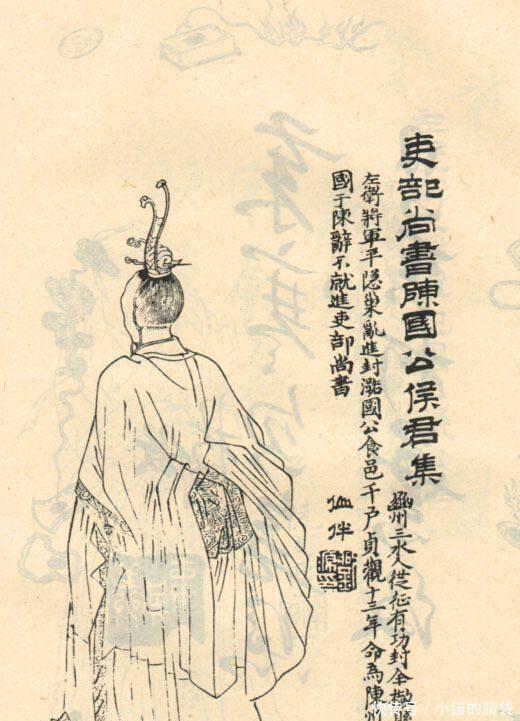 吏部尚書陳國公侯君集
豳州三水人從征有功封全椒
左衛將軍平隱巢亂進封潞國公食邑千戶貞觀十三年命為陳州
國于陳辭不就進吏部尚書
快传号 / 小猫的脑袋